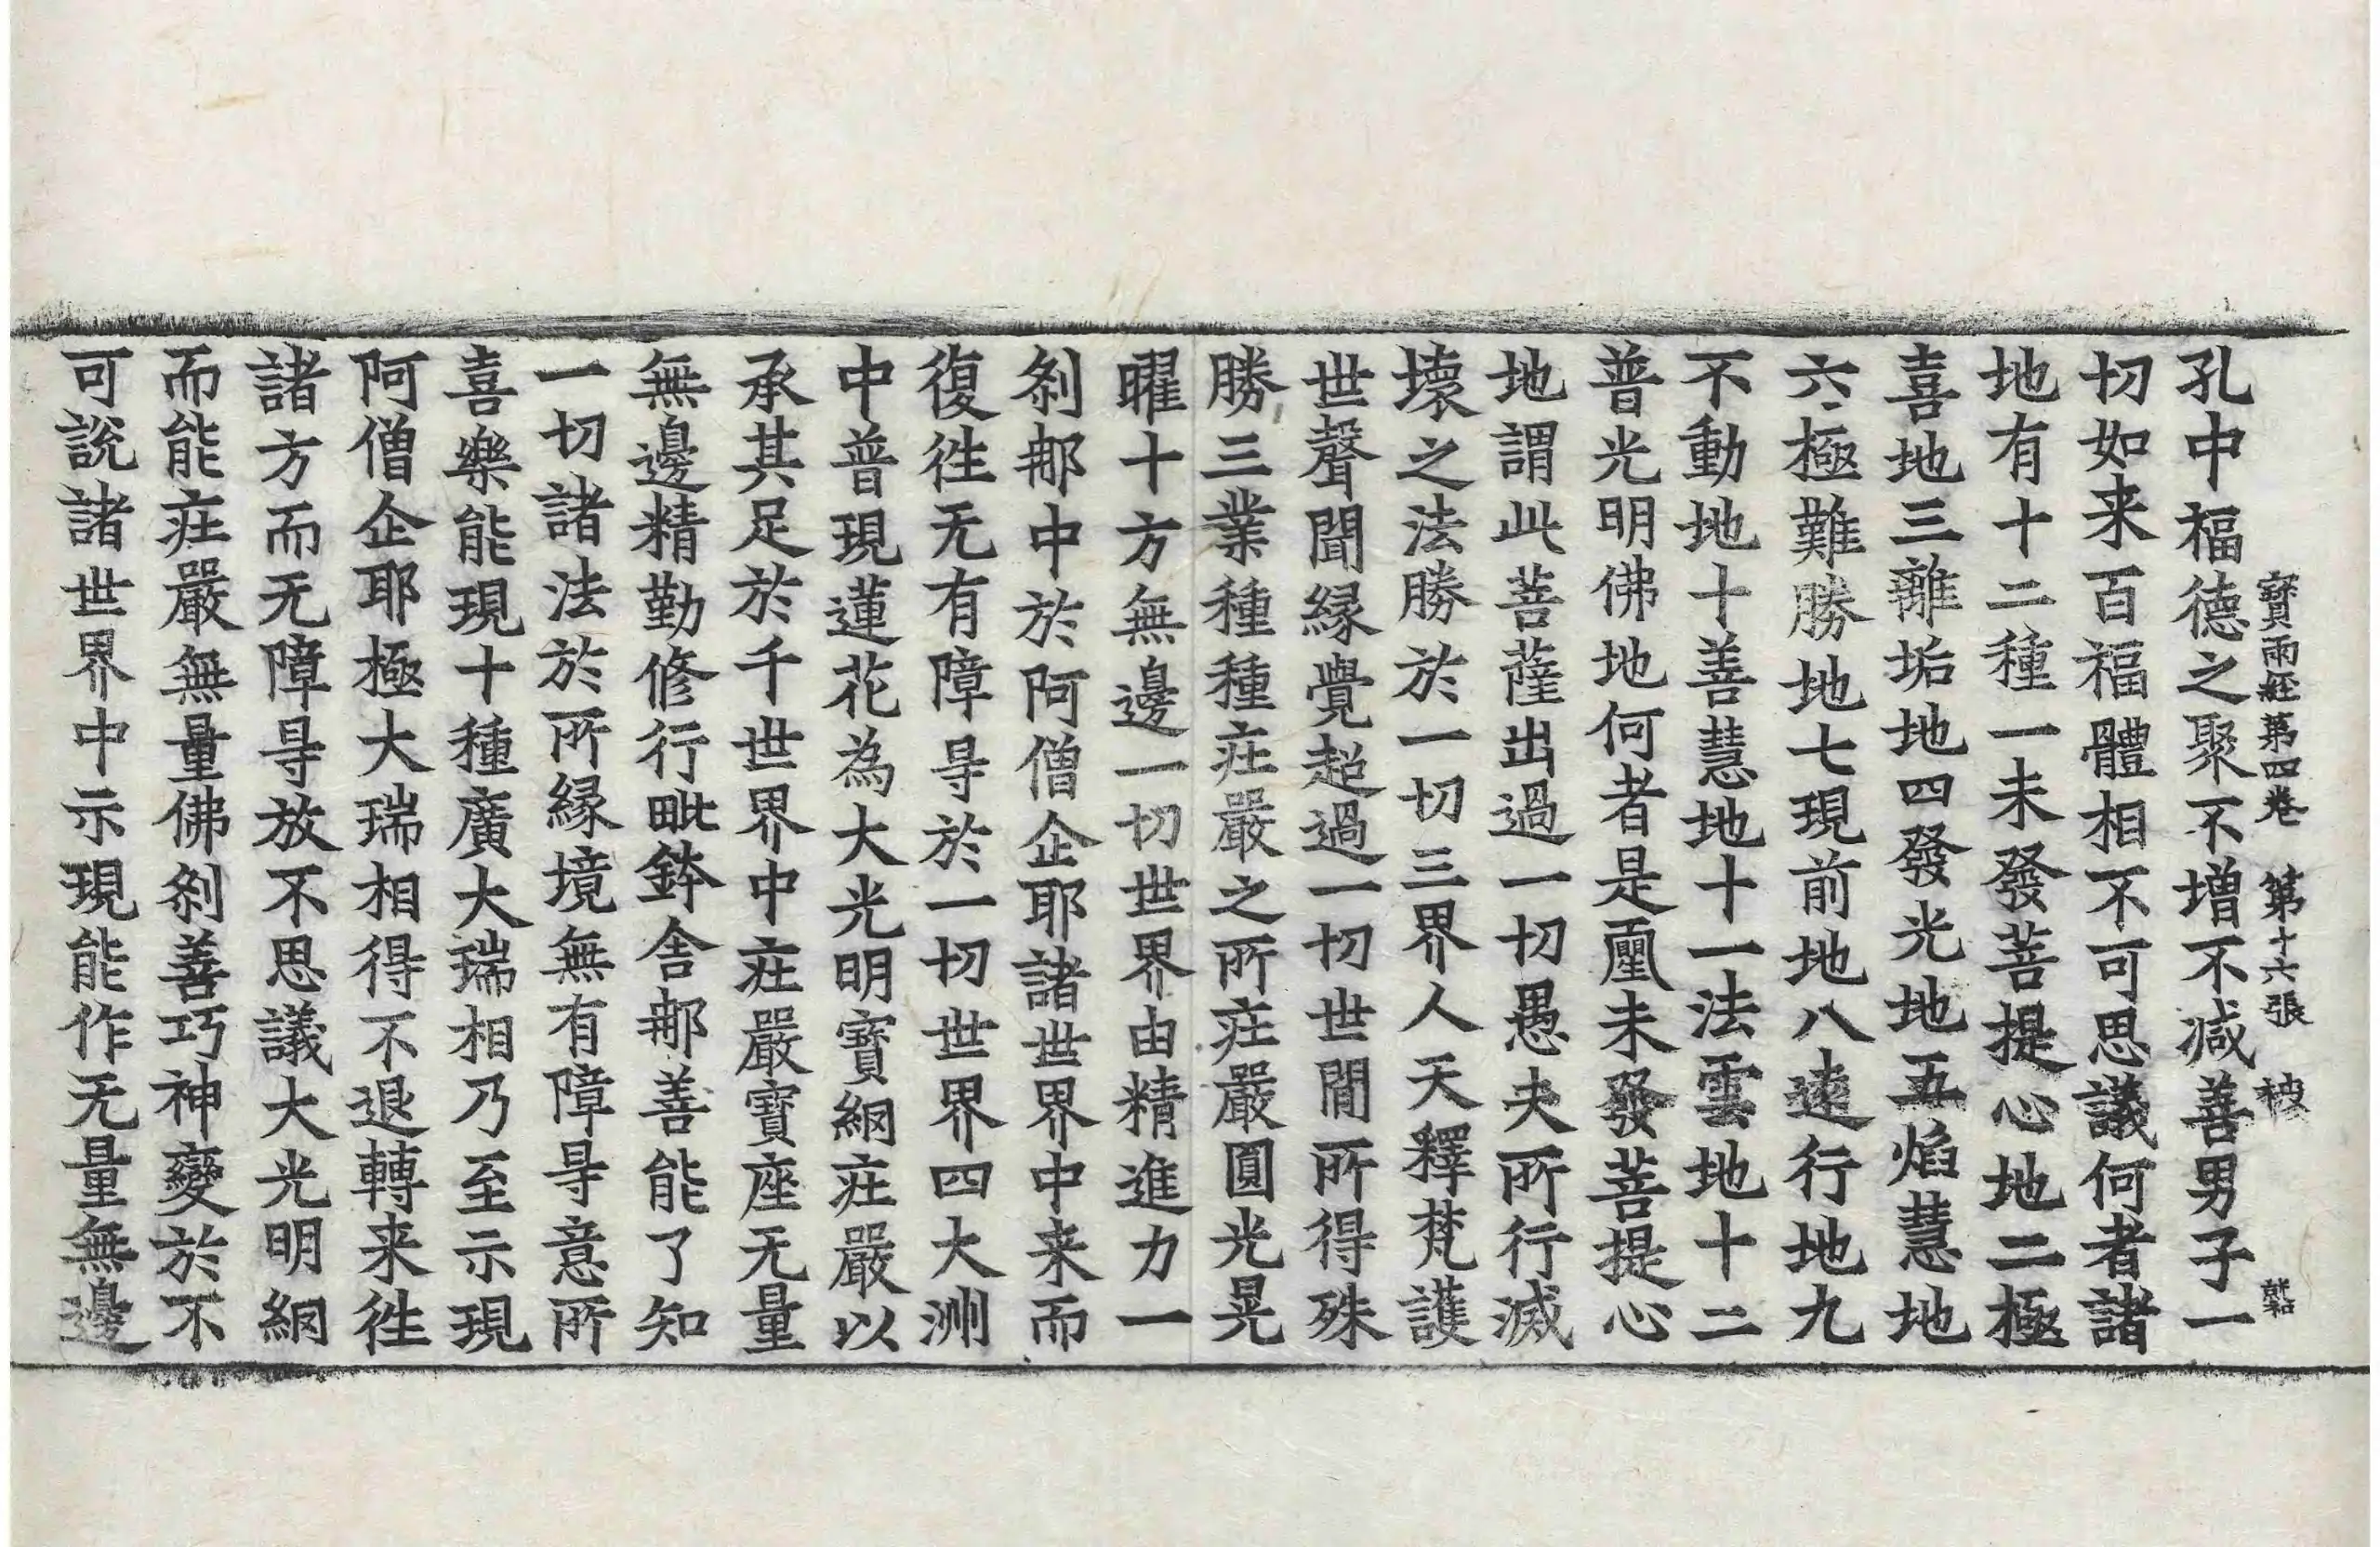 寶雨經第四卷　第十六張　被
孔中福德之聚不增不減善男子一
切如来百福體相不可思議何者諸
地有十二種一未發菩提心地二極
喜地三離垢地四發光地五焰慧地
六極難勝地七現前地八遠行地九
不動地十善慧地十一法雲地十二
普光明佛地何者是𠁈未發菩提心
地謂此菩薩出過一切愚夫所行滅
壞之法勝於一切三界人天釋梵護
世聲聞緣覺超過一切世間所得殊
勝三業種種庄嚴之所庄嚴圓光晃
曜十方無邊一切世界由精進力一
剎那中於阿僧企耶諸世界中来而
復往无有障㝵於一切世界四大洲
中普現蓮花為大光明寶網庄嚴以
承其足於千世界中庄嚴寶座无量
無邊精勤修行毗鉢舍那善能了知
一切諸法於所緣境無有障㝵意所
喜樂能現十種廣大瑞相乃至示現
阿僧企耶極大瑞相得不退轉来往
諸方而无障㝵放不思議大光明網
而能庄嚴無量佛剎善巧神變於不
可說諸世界中示現能作无量無邊